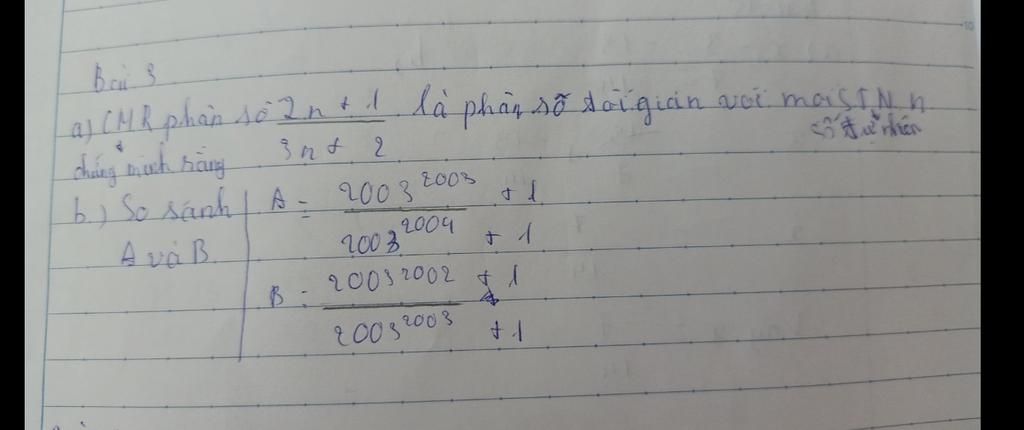 Bài 3
a) CMR phân số 2n + 1 là phân số tối giản với mọi STN n
chứng minh rằng 3n + 2 số tự nhiên
b) So sánh A = 2003^2003 + 1
2003^2004 + 1
A và B
B = 2003^2002 + 1
2003^2003 + 1